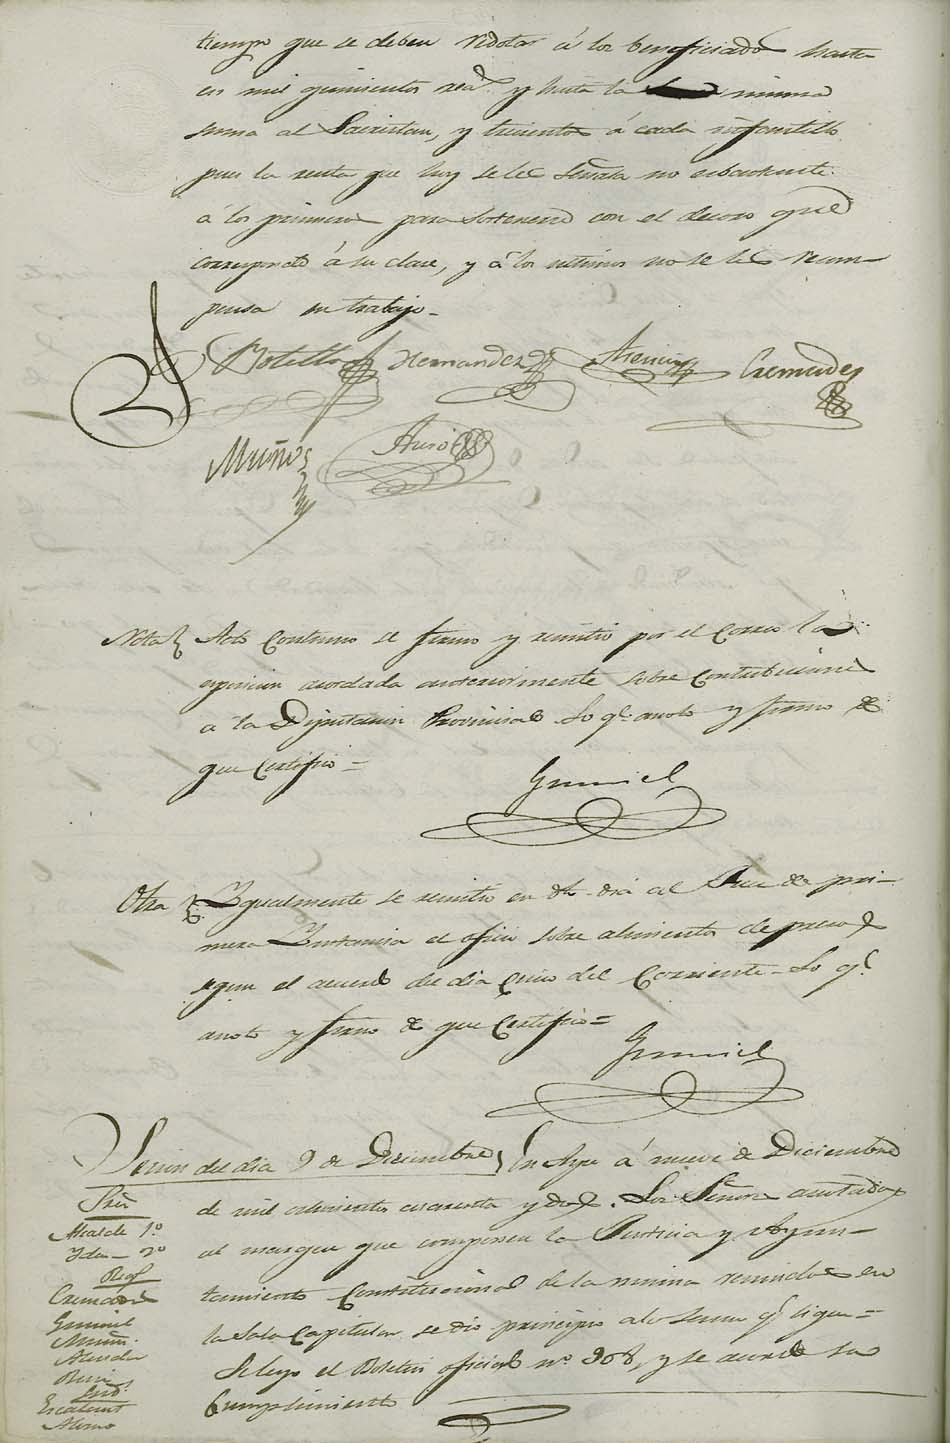 tiempo que se deben redotar á los beneficiados hasta
en mil quinientos rea.s y hasta la misma
suma al Sacristan, y trecientos á cada infantillo
pues la renta que hoy se les señala no es bastante
á los primeros para sostenerse con el decoro que
corresponde á su clase, y á los ultimos no se les recom-
pensa su trabajo.
Botella Hernandez Asencio Cremades
Muños Auso
Nota Acto continuo se firmo y remitio por el Correo la
esposicion acordada anteriormente sobre Contribuciones
á la Diputacion Provincial. Lo q.e anoto y firmo de
que Certifico =
Gumiel
Otra Ygualmente se remitio en dh. dia al Juez de pri-
mera Ynstancia el oficio sobre alimentos de presos
segun el acuerdo del dia cinco del Corriente. Lo q.e
anoto y firmo de que Certifico =
Gumiel
Sesion del dia 9 de Diciembre En Aspe á nueve de Diciembre
de mil ochocientos cuarenta y dos. Los Señores anotados
al margen que componen la Justicia y Ayun-
tamiento Constitucional de la misma reunidos en
la Sala Capitular se dio principio a la Sesion q.e sigue =
Se leyo el Boletin oficial n.o 908, y se acordo su
Cumplimiento
Sres
Alcalde 1.o
Ydem 2.o
Reg.s
Cremades
Gumiel
Muñoz
Almodar
Sind.s
Escalant
Alonso